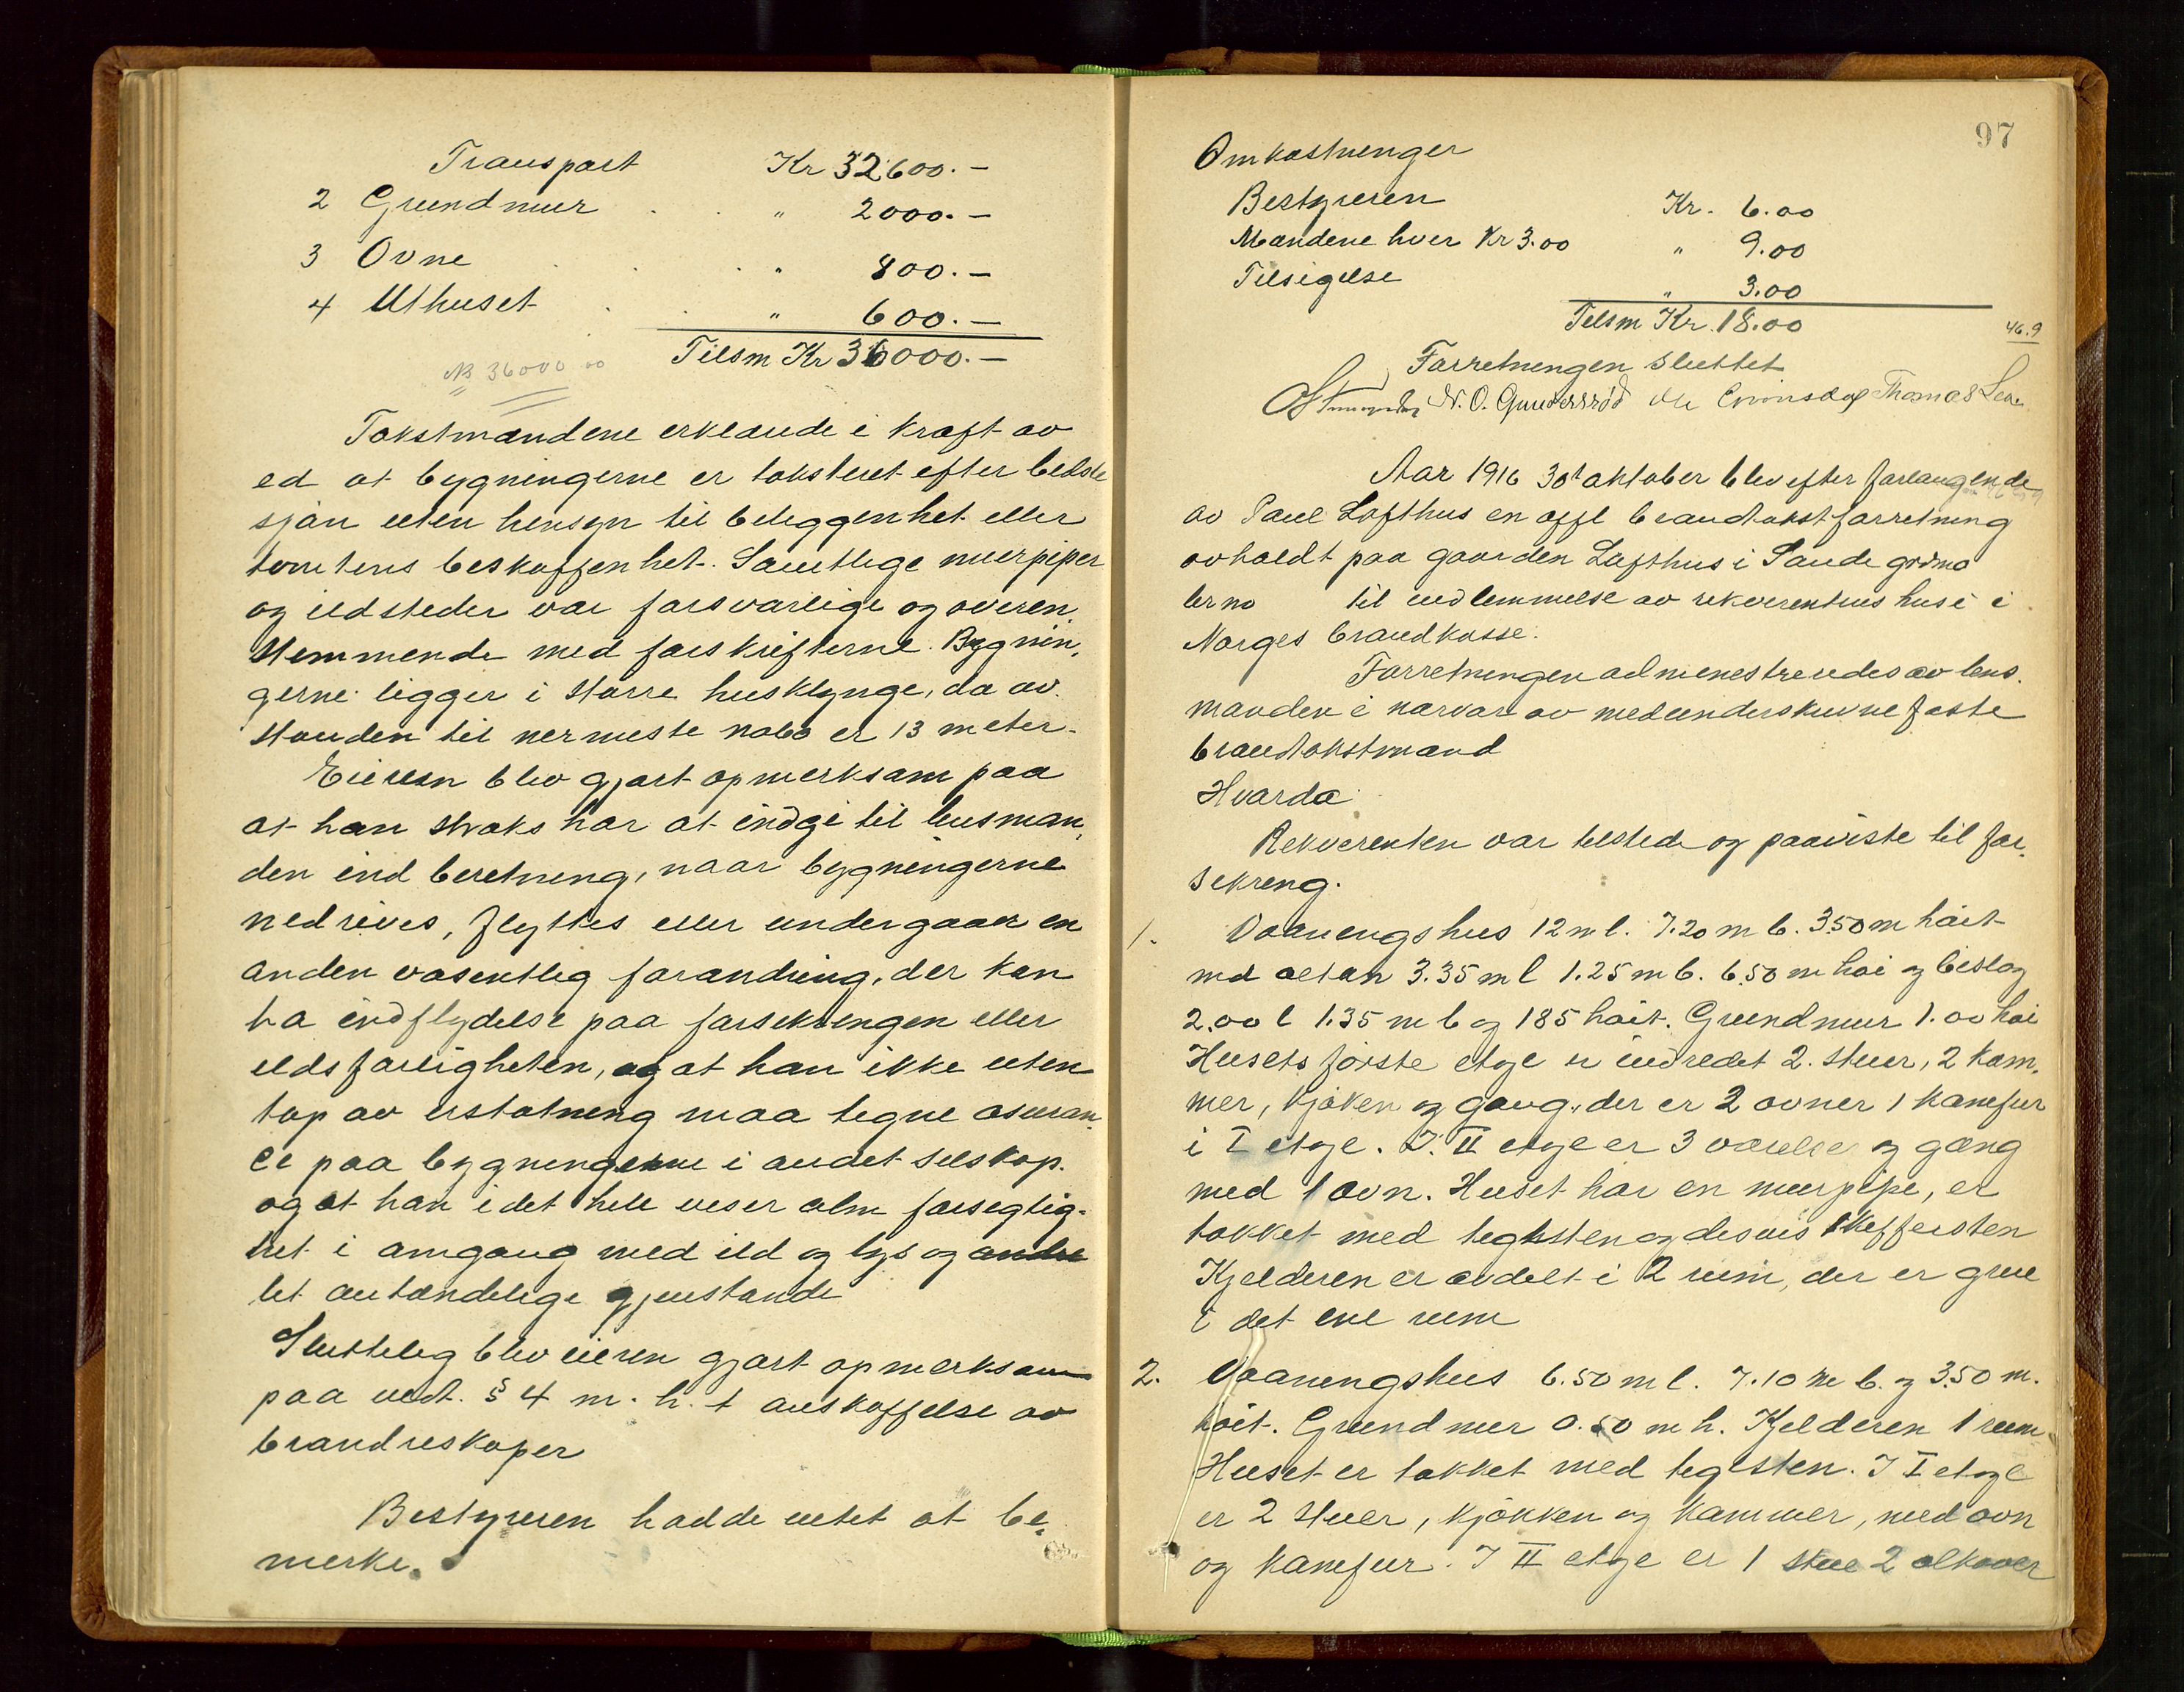 Transport Kr 32600.-
2 Grundmur . . " 2000.-
3 Ovne . . . " 800.-
4 Uthuset . . " 600.-
Tilsm Kr 36000.-
NB 36000 00
Takstmændene erklærede i kraft av
ed at bygningerne er taksteret efter bedste
sjøn uten hensyn til beliggenhet eller
tomtens beskaffenhet. Samtlige murpiper
og ildsteder var forsvarlige og overen,
stemmende med forskrifterne. Bygnin,
gerne ligger i større husklynge, da av
standen til nermeste nabo er 13 meter.
Eieren blev gjort opmerksom paa
at han straks har at indgi til lensman,
den ind beretning, naar bygningerne
nedrives, flyttes eller undergaar en
anden væsentlig forandring, der kan
ha indflydelse paa forsekringen eller
ildsfarligheten, og at han ikke uten
tap av erstatning maa tegne asuran,
ce paa bygningerne i andet selskap.
og at han i det hele viser alm forsigtig-
het i omgang med ild og lys og andre
let antændelige gjenstande
Slutteleg blev eieren gjort opmerksom
paa vedt. § 4 m. h. t anskaffelse av
brandreskaper
Bestyreren hadde intet at be,
merke.
97
Omkostninger
Bestyreren Kr. 6.00
Mændene hver Kr 3.00 " 9.00
Tilsigelse " 3.00
Tilsm Kr. 18.00
46.9
Forretningen sluttet
N. O. Gundersrød Ole Thomas
Aar 1916 30t oktober blev efter forlangende
av Paul Lofthus en offl brandtakstforretning
avholdt paa gaarden Lofthus i Sande grdno
brno til indlemmelse av rekverentens huse i
Norges brandkasse.
Forretningen adminestreredes av lens,
manden i nærvær av medunderskrevne faste
brandtakstmænd
Hvorda
Rekverenten var tilstede og paaviste til for,
sekreng.
1. Vaanengshus 12 m l. 7.20 m b. 3.50 m høit
med altan 3.35 m l 1.25 m b. 6.50 m høi og bislag
2.00 l 1.35 m b og 185 høit. Grundmur 1.00 høi
Husets første etage er indredet 2. stuer, 2 kam,
mer, kjøken og gang, der er 2 ovner 1 kamfur
i I etage. I II etage er 3 værelse og gang
med 1 ovn. Huset har en murpipe, er
takket med teglsten og desuis skiffersten
Kjelderen er avdelt i 2 rum, der er grue
i det ene rum
2. Vaanengshus 6.50 m l. 7.10 m b. og 3.50 m.
høit. Grundmur 0.50 m h. Kjelderen 1 rum.
Huset er takket med teglsten. I I etage
er 2 stuer, kjøkken og kammer, med ovn
og kamfur. I II etage er 1 stue 2 alkover